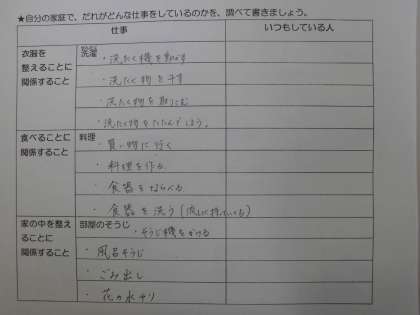 ★自分の家庭で、だれがどんな仕事をしているのかを、調べて書きましょう。
仕事
いつもしている人
衣服を
整えることに
関係すること
洗濯
・洗たく機を動かす
・洗たく物を干す
・洗たく物を取りこむ
・洗たく物をたたんでしまう。
食べることに
関係すること
料理
・買い物に行く
・料理を作る
・食器をならべる
・食器を洗う(流しに持っていく)
家の中を整え
ることに
関係すること
部屋のそうじ
・そうじ機をかける
・風呂そうじ
・ごみ出し
・花の水やり